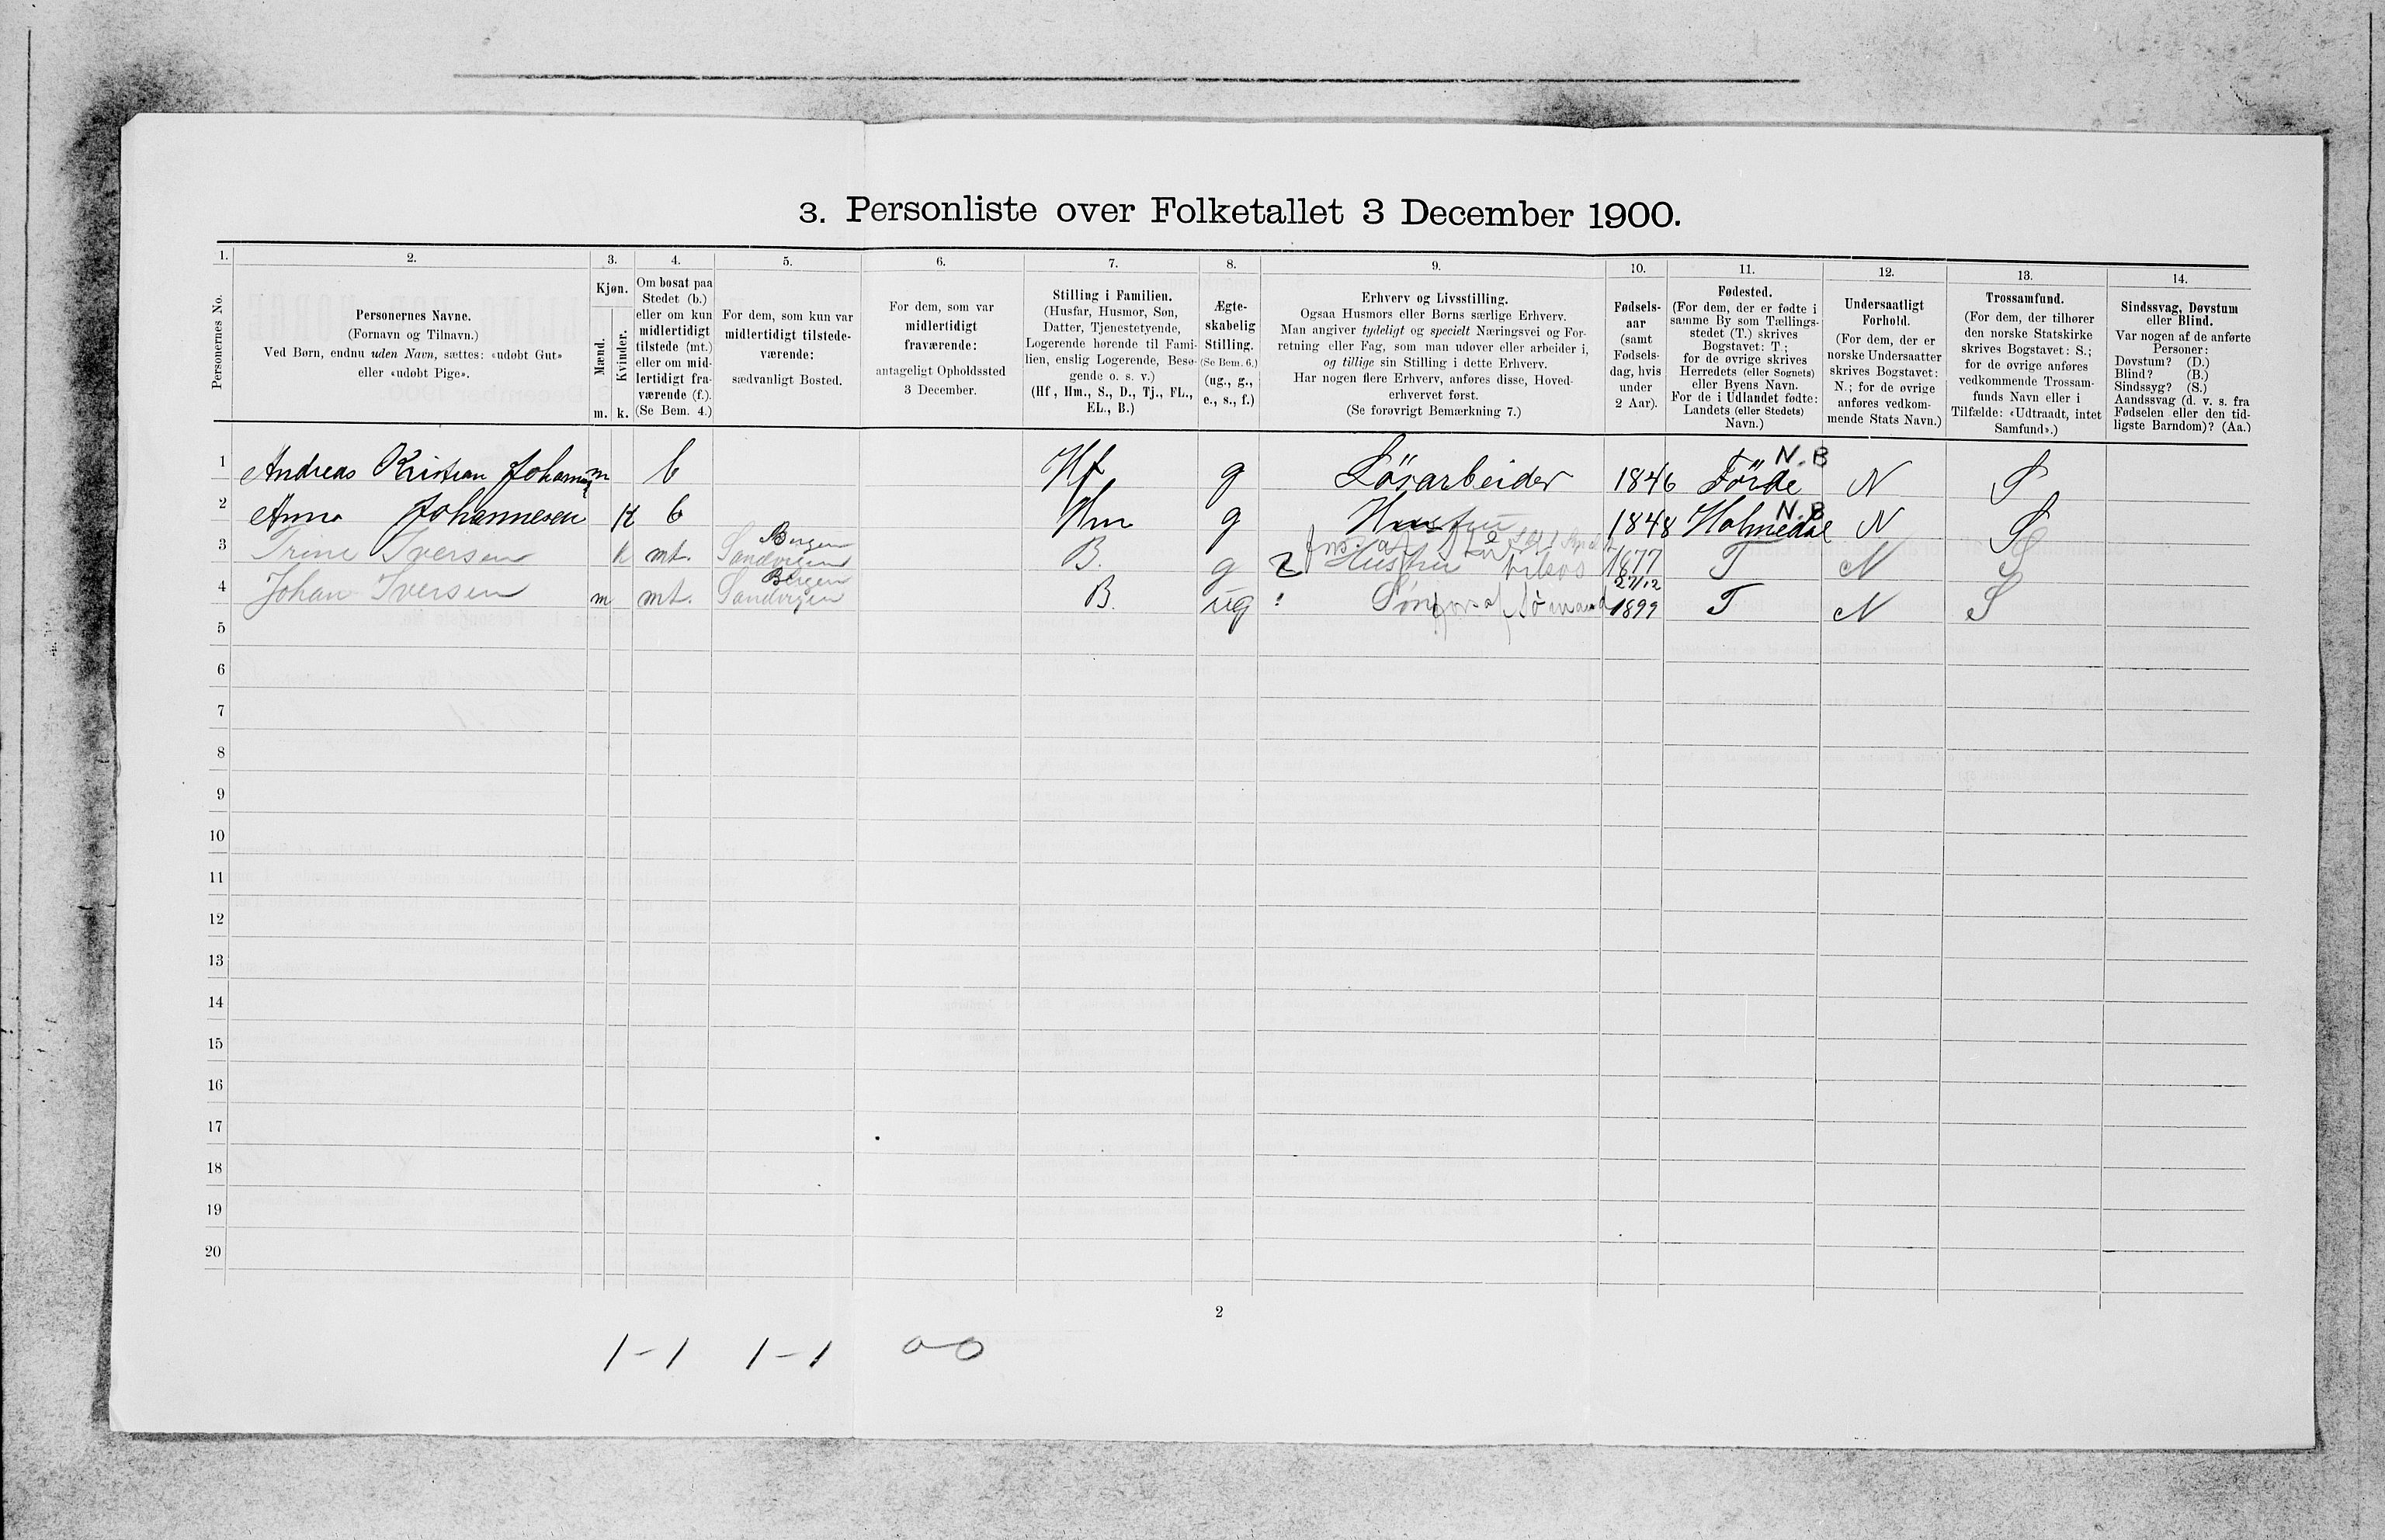 3. Personliste over Folketallet 3 December 1900.
1. 2. 3. 4. 5. 6. 7. 8. 9. 10. 11. 12. 13. 14.
Personernes No.
Personernes Navne.
(Fornavn og Tilnavn.)
Ved Børn, endnu uden Navn, sættes: «udøbt Gut»
eller «udøbt Pige».
Kjøn.
Mænd.
Kvinder.
m. k.
Om bosat paa
Stedet (b.)
eller om kun
midlertidigt
tilstede (mt.)
eller om mid-
lertidigt fra-
værende (f.).
(Se Bem. 4.)
For dem, som kun var
midlertidigt tilstede-
værende:
sædvanligt Bosted.
For dem, som var
midlertidigt
fraværende:
antageligt Opholdssted
3 December.
Stilling i Familien.
(Husfar, Husmor, Søn,
Datter, Tjenestetyende,
Logerende hørende til Fami-
lien, enslig Logerende, Besø-
gende o. s. v.)
(Hf, Hm., S., D., Tj., FL.,
EL., B.)
Ægte-
skabelig
Stilling.
(Se Bem. 6.)
(ug., g.,
e., s., f.)
Erhverv og Livsstilling.
Ogsaa Husmors eller Børns særlige Erhverv.
Man angiver tydeligt og specielt Næringsvei og For-
retning eller Fag, som man udøver eller arbeider i,
og tillige sin Stilling i dette Erhverv.
Har nogen flere Erhverv, anføres disse, Hoved-
erhvervet først.
(Se forøvrigt Bemærkning 7.)
Fødsels-
aar
(samt
Fødsels-
dag, hvis
under
2 Aar).
Fødested.
(For dem, der er fødte i
samme By som Tællings-
stedet (T.) skrives
Bogstavet: T.;
for de øvrige skrives
Herredets (eller Sognets)
eller Byens Navn.
For de i Udlandet fødte:
Landets (eller Stedets)
Navn.)
Undersaatligt
Forhold.
(For dem, der er
norske Undersaatter
skrives Bogstavet:
N.; for de øvrige
anføres vedkom-
mende Stats Navn.)
Trossamfund.
(For dem, der tilhører
den norske Statskirke
skrives Bogstavet: S.;
for de øvrige anføres
vedkommende Trossam-
funds Navn eller i
Tilfælde: «Udtraadt, intet
Samfund».)
Sindssvag, Døvstum
eller Blind.
Var nogen af de anførte
Personer:
Døvstum? (D.)
Blind? (B.)
Sindssyg? (S.)
Aandssvag (d. v. s. fra
Fødselen eller den tid-
ligste Barndom)? (Aa.)
1 Andreas Kristian m b Hf g Lösarbeider 1846 Förde N.B N S
2 Anna Johannesen k b Hm g Hustru 1848 Holmedal N.B N S
3 Trine Iversen k mt. Sandvigen Bergen B. g Hustru 1877 T N S
4 Johan Iversen m mt. Sandvigen Bergen B. ug Søn 27/12 1899 T N S
5
6
7
8
9
10
11
12
13
14
15
16
17
18
19
20
2
1-1 1-1 00